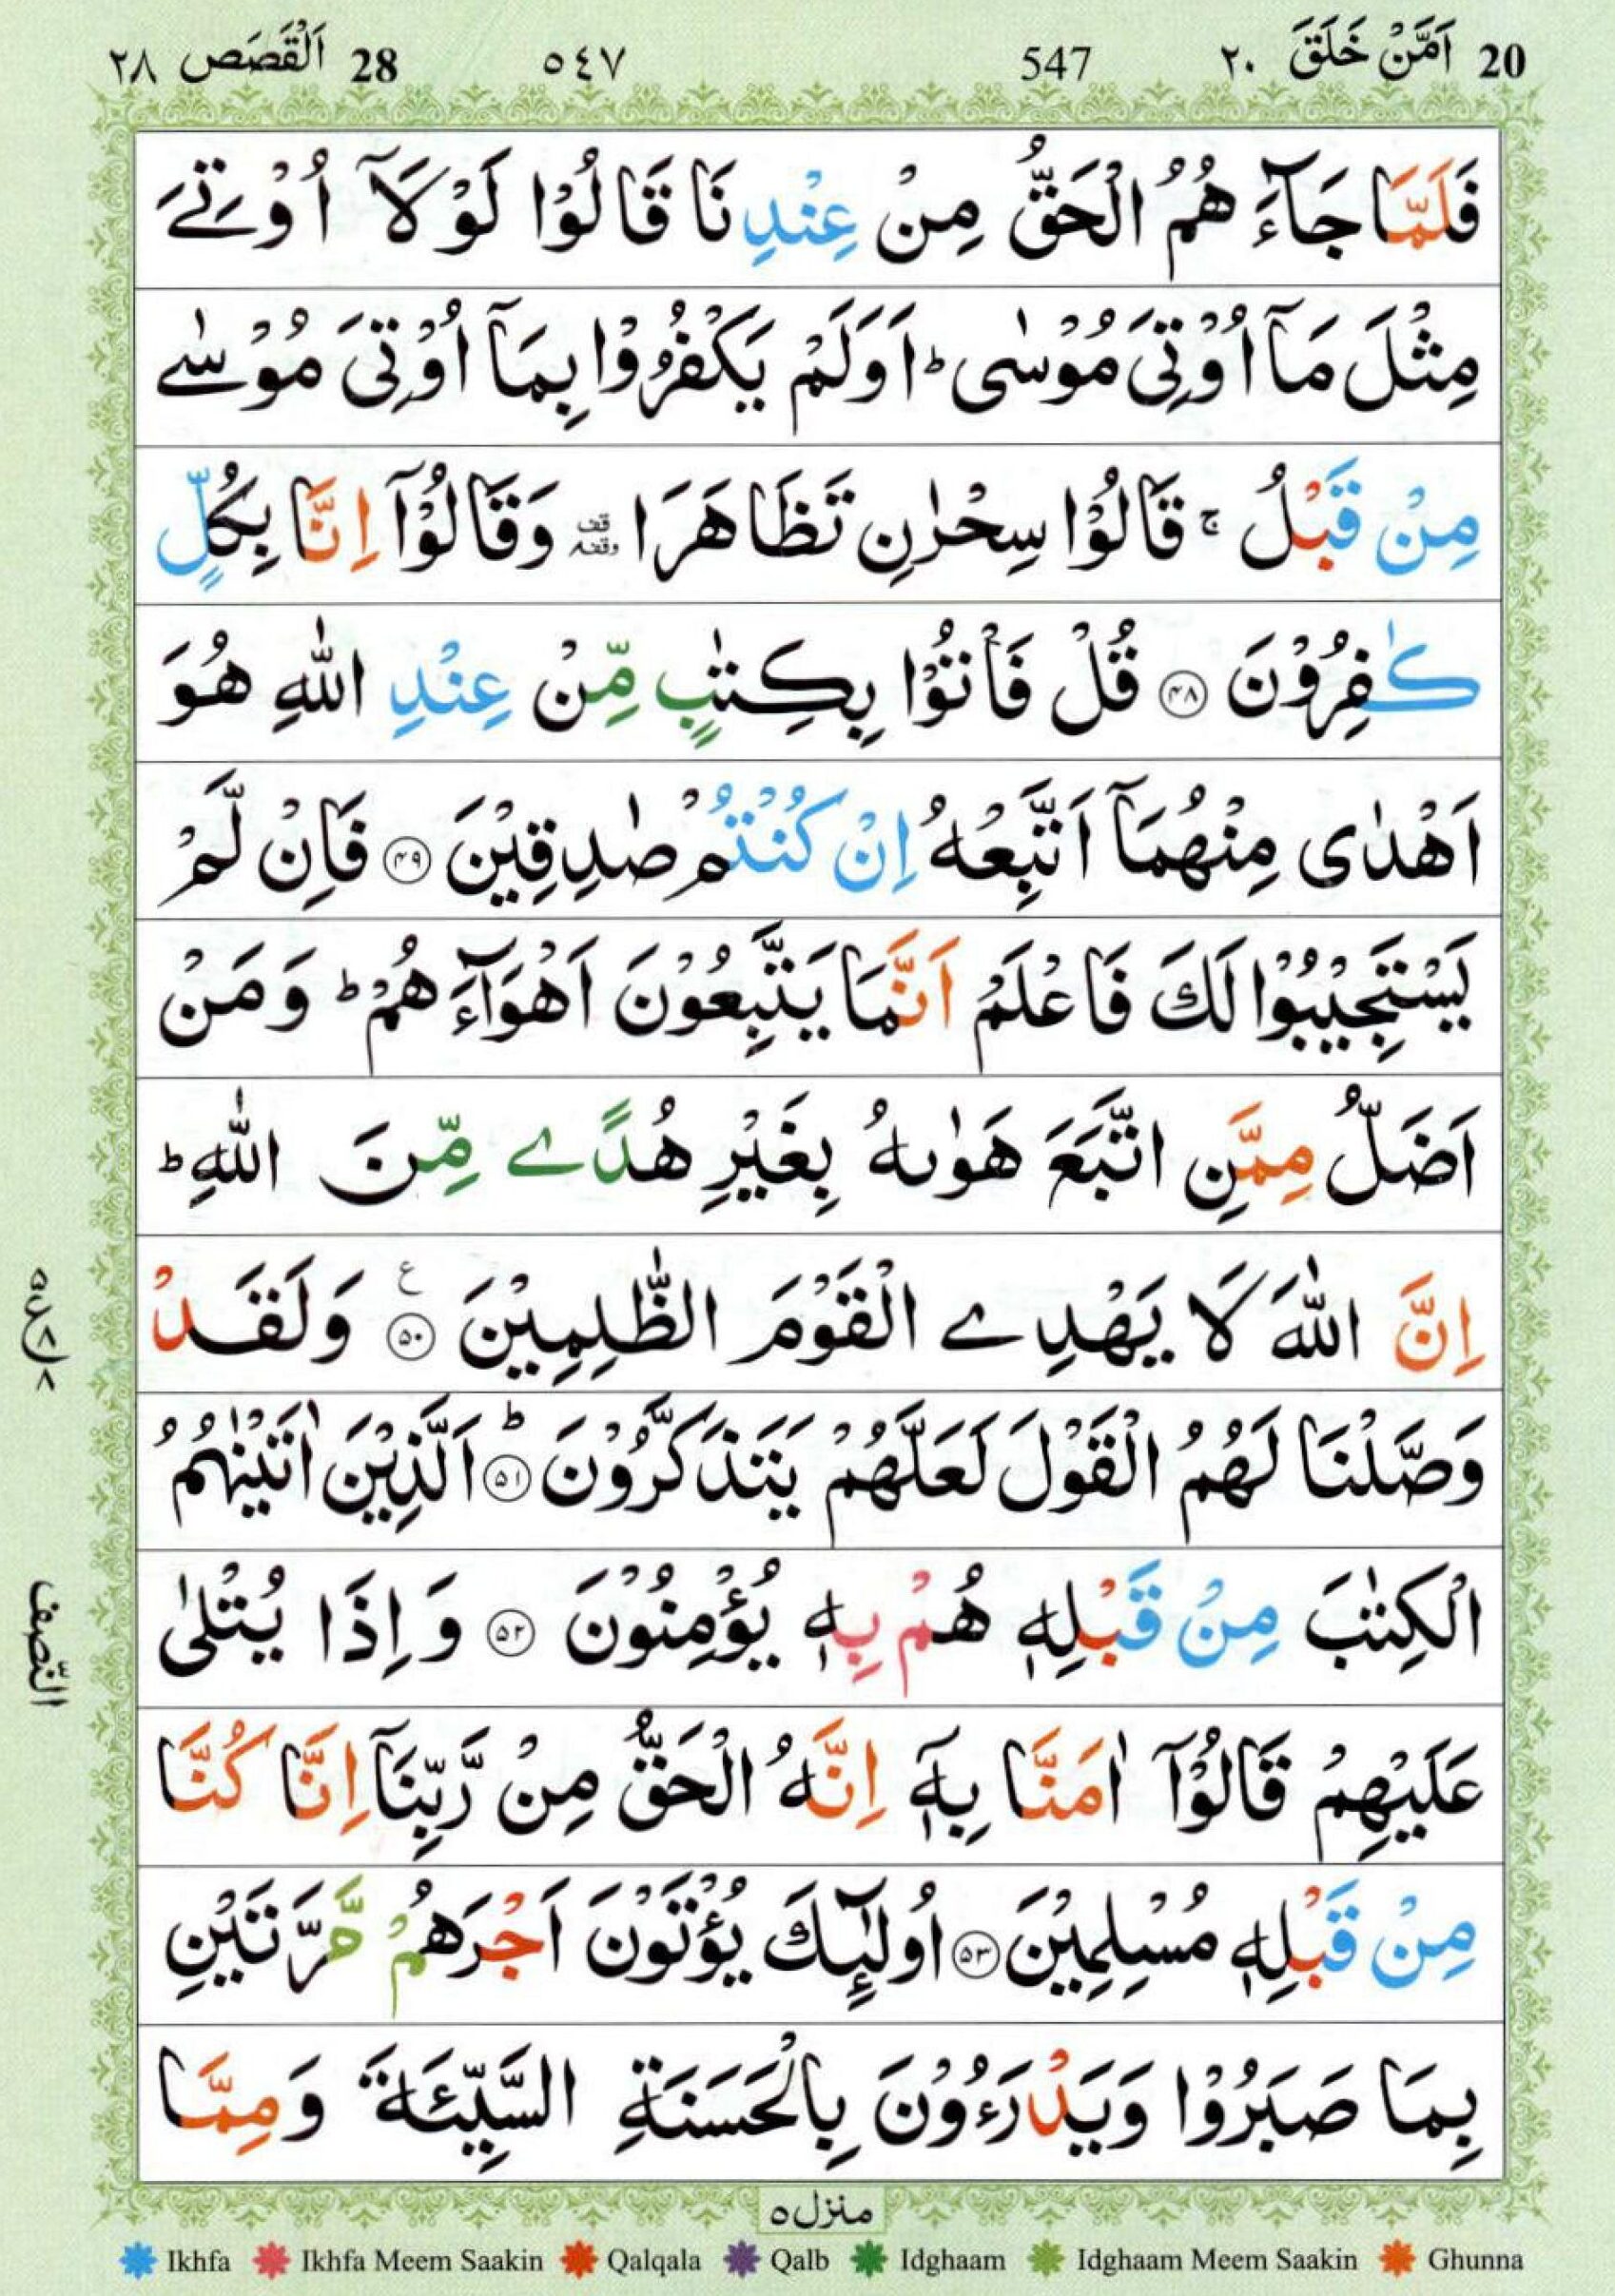 20 اَمَّنْ خَلَقَ ٢٠ 547 ٥٤٧ 28 اَلْقَصَص ٢٨
فَلَمَّا جَآءَ هُمُ الْحَقُّ مِنْ عِنْدِنَا قَالُوْا لَوْ لَاۤ اُوْتِےَ
مِثْلَ مَاۤ اُوْتِیَ مُوْسٰی ؕ اَوَلَمْ یَكْفُرُوْا بِمَاۤ اُوْتِیَ مُوْسٰے
مِنْ قَبْلُ ۚ قَالُوْا سِحْرٰنِ تَظَاهَرَا قف وقفہ وَقَالُوْۤا اِنَّا بِكُلٍّ
كٰفِرُوْنَ ﴿۴۸﴾ قُلْ فَاْتُوْا بِكِتٰبٍ مِّنْ عِنْدِ اللّٰهِ هُوَ
اَهْدٰی مِنْهُمَاۤ اَتَّبِعْهُ اِنْ كُنْتُمْ صٰدِقِیْنَ ﴿۴۹﴾ فَاِنْ لَّمْ
یَسْتَجِیْبُوْا لَكَ فَاعْلَمْ اَنَّمَا یَتَّبِعُوْنَ اَهْوَآءَهُمْ ؕ وَمَنْ
اَضَلُّ مِمَّنِ اتَّبَعَ هَوٰىهُ بِغَیْرِ هُدًے مِّنَ اللّٰهِ ؕ
اِنَّ اللّٰهَ لَا یَهْدِے الْقَوْمَ الظّٰلِمِیْنَ ﴿۵۰﴾ ع وَلَقَدْ
وَصَّلْنَا لَهُمُ الْقَوْلَ لَعَلَّهُمْ یَتَذَكَّرُوْنَ ﴿۵۱﴾ ؕ اَلَّذِیْنَ اٰتَیْنٰهُمُ
الْكِتٰبَ مِنْ قَبْلِهٖ هُمْ بِهٖ یُؤْمِنُوْنَ ﴿۵۲﴾ وَاِذَا یُتْلٰی
عَلَیْهِمْ قَالُوْۤا اٰمَنَّا بِهٖۤ اِنَّهُ الْحَقُّ مِنْ رَّبِّنَاۤ اِنَّا كُنَّا
مِنْ قَبْلِهٖ مُسْلِمِیْنَ ﴿۵۳﴾ اُولٰٓئِكَ یُؤْتَوْنَ اَجْرَهُمْ مَّرَّتَیْنِ
بِمَا صَبَرُوْا وَیَدْرَءُوْنَ بِالْحَسَنَةِ السَّیِّئَةَ وَمِمَّا
النّصف
منزل ۵
Ikhfa Ikhfa Meem Saakin Qalqala Qalb Idghaam Idghaam Meem Saakin Ghunna